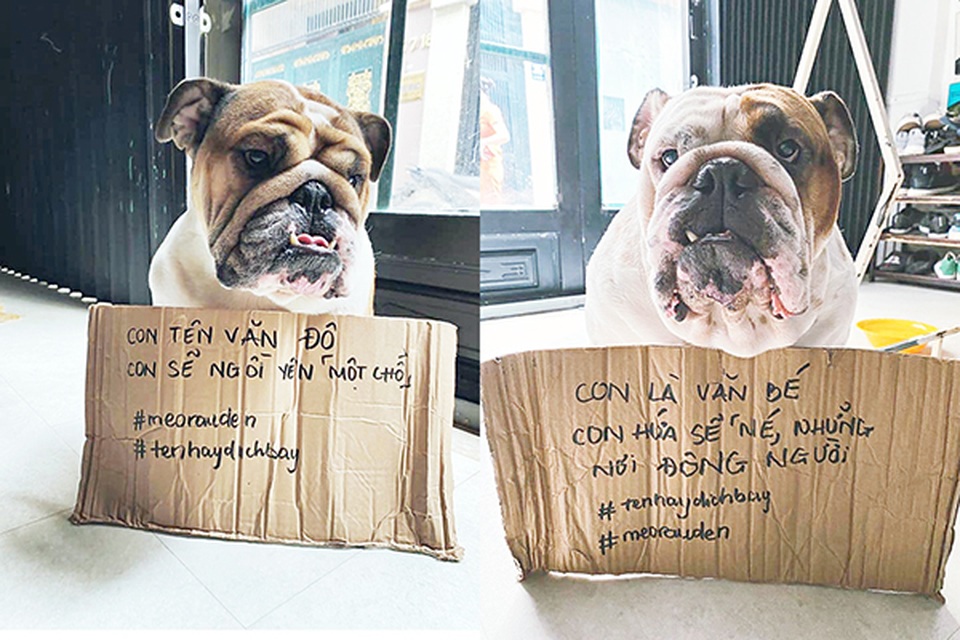 CON TÊN VĂN ĐÔ
CON SẼ NGỒI YÊN "MỘT CHỖ"
#meorauden
#tenhaydichbay
CON LÀ VĂN BÉ
CON HỨA SẼ "NÉ, NHỮNG
NƠI ĐÔNG NGƯỜI
#tenhaydichbay
#meorauden